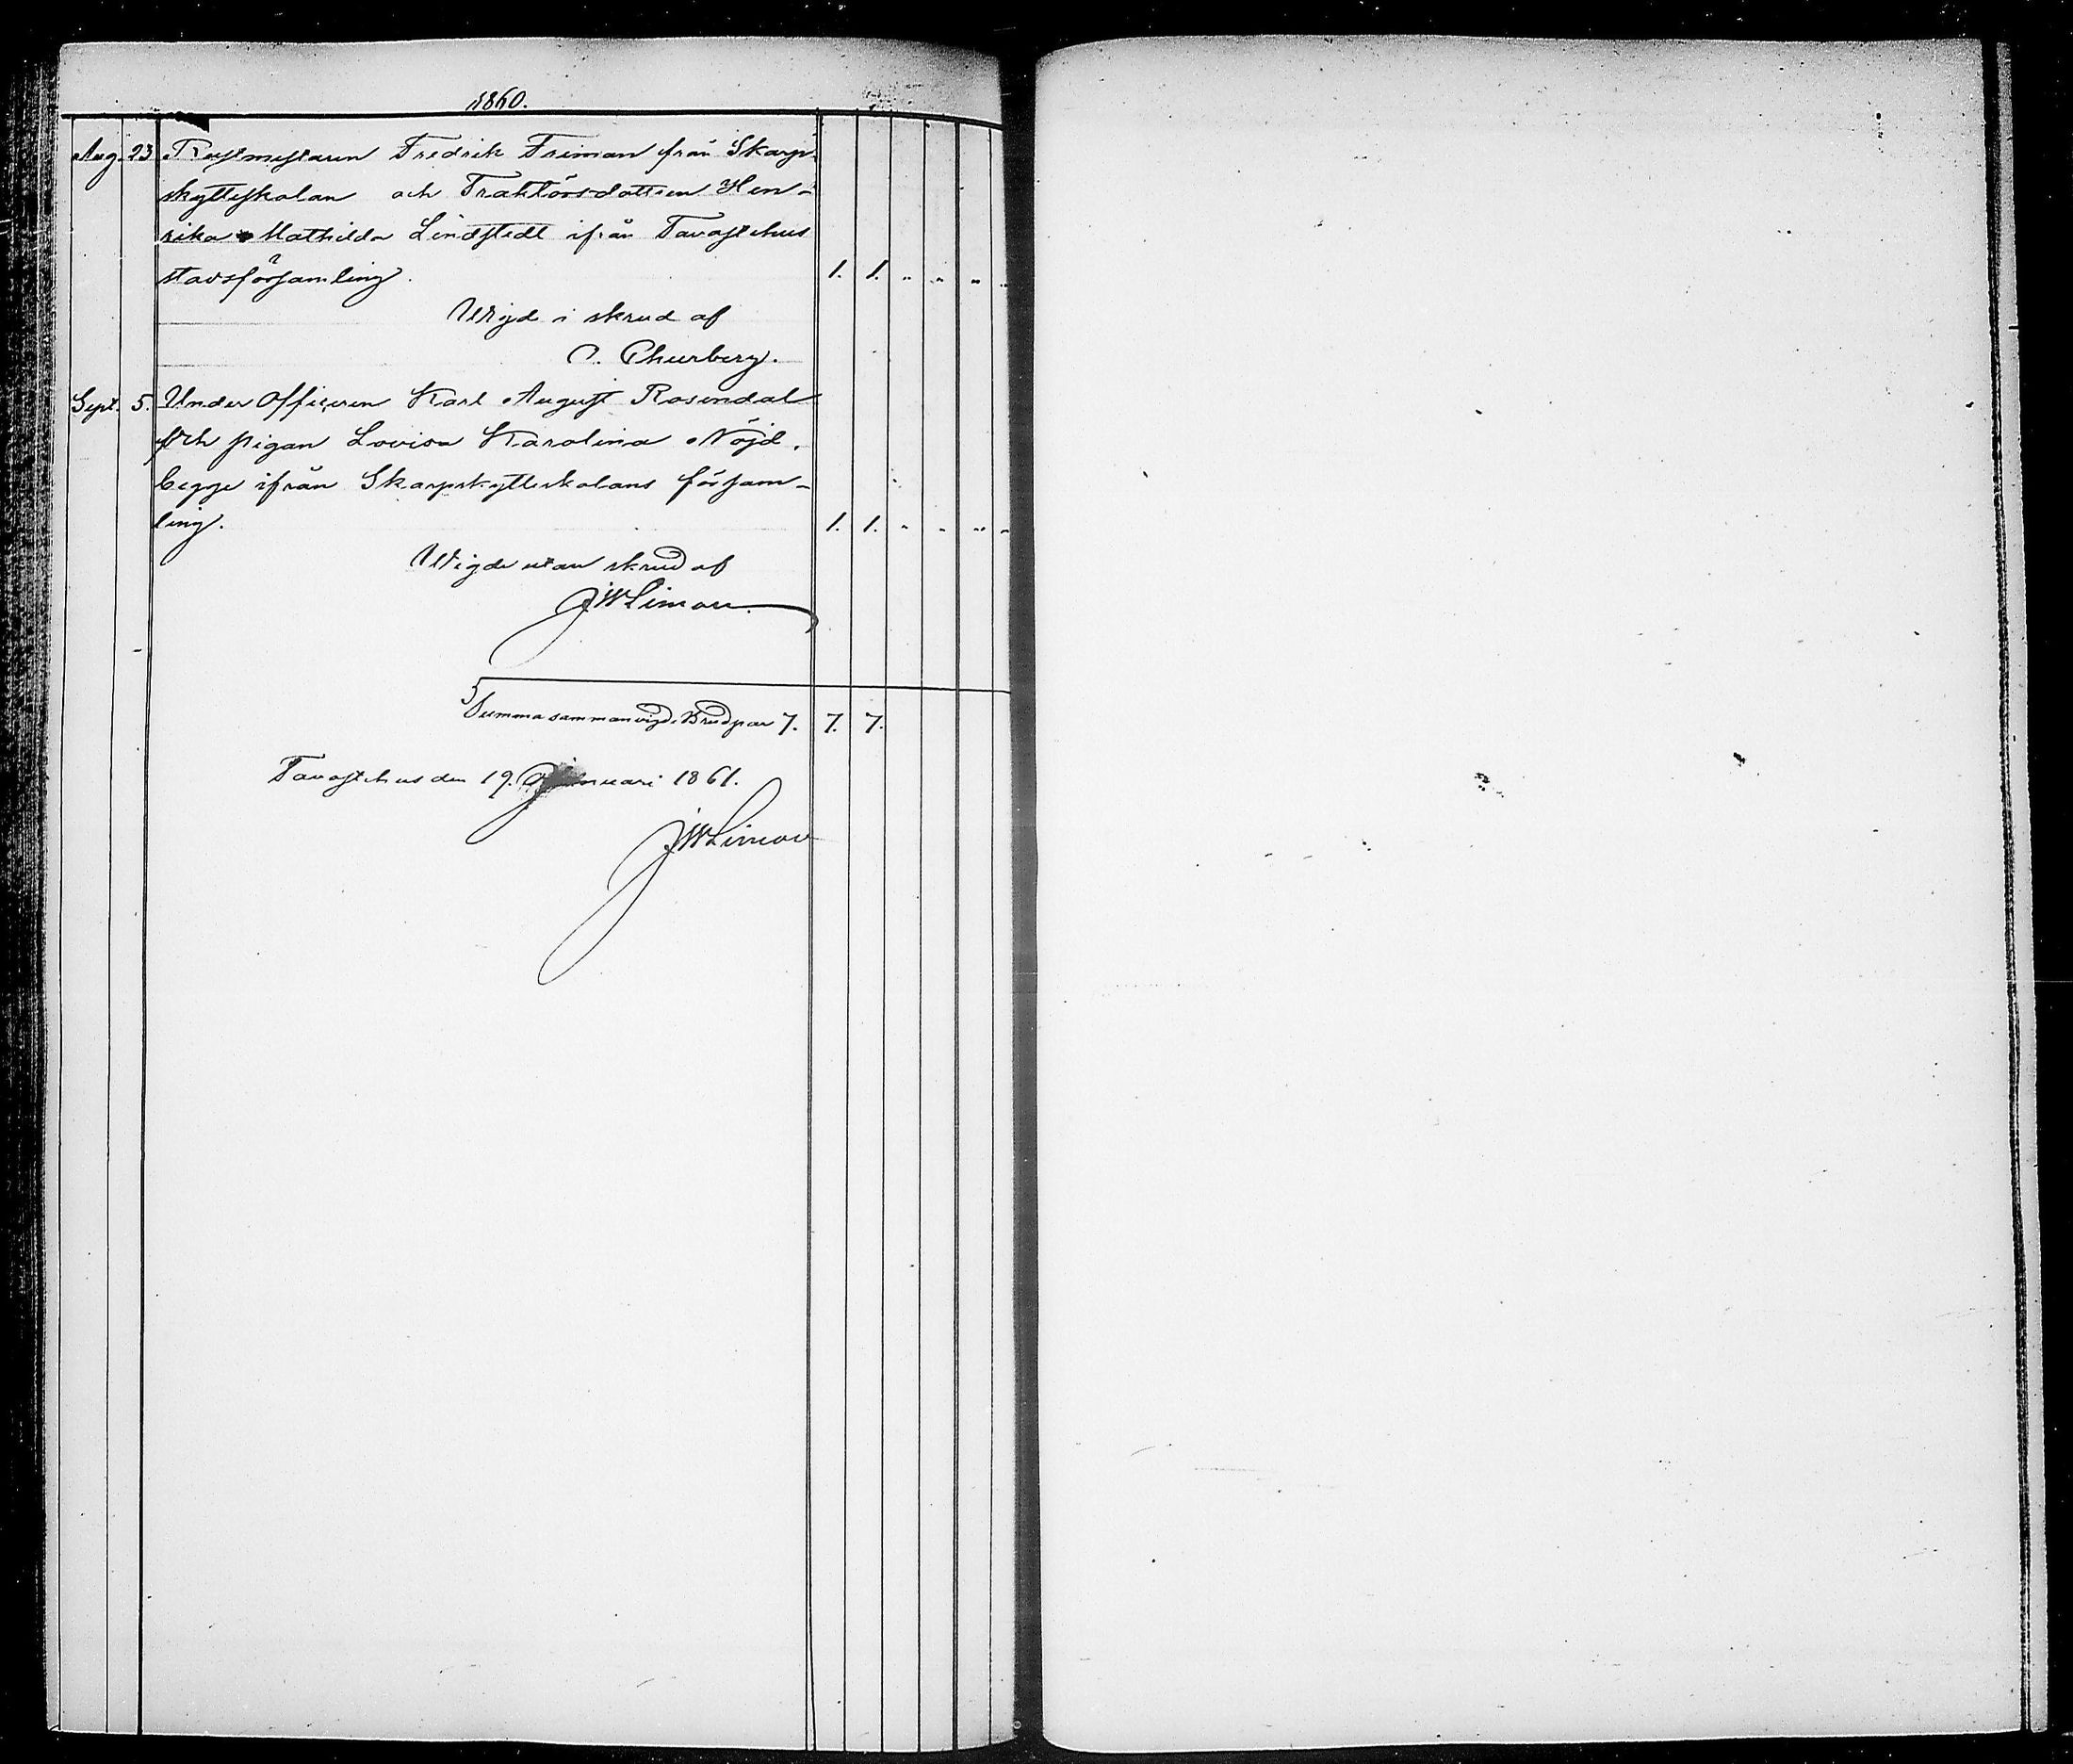 1860.
Aug. 23 Rustmestaren Fredrik Friman från Skarp-
skytteskolan och Traktörsdottren Hen-
rika Mathilda Lindstedt ifrån Tavastehus
stadsförsamling. 1. 1. " " " "
Wigd i skrud af
C. Churberg.
Sept. 5. Under Officeren Karl August Rosendal
och pigan Lovisa Karolina Nöjd,
begge ifrån Skarpskytteskolans församl-
ing. 1. 1. " " " "
Wigde utan skrud af
JWLimon
Summa sammanvigde Brudpar 7. 7. 7.
Tavastehus den 19. Januari 1861.
JWLimon